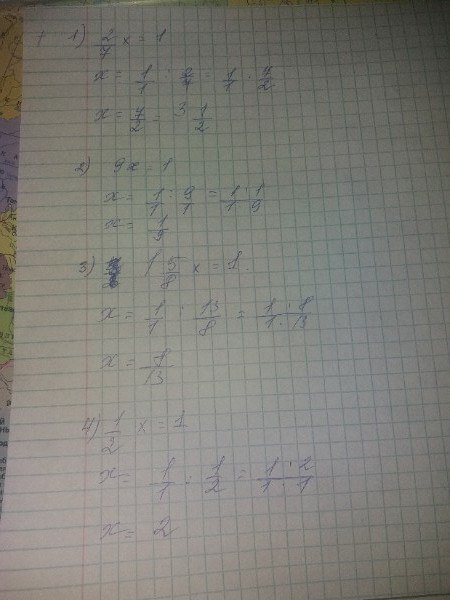 1) 2/7 x = 1
x = 1/1 : 2/7 = 1/1 · 7/2
x = 7/2 = 3 1/2
2) 9x = 1
x = 1/1 : 9/1 = 1·1/1·9
x = 1/9
3) 1 5/8 x = 1.
x = 1/1 : 13/8 = 1·8/1·13
x = 8/13
4) 1/2 x = 1
x = 1/1 : 1/2 = 1·2/1·1
x = 2